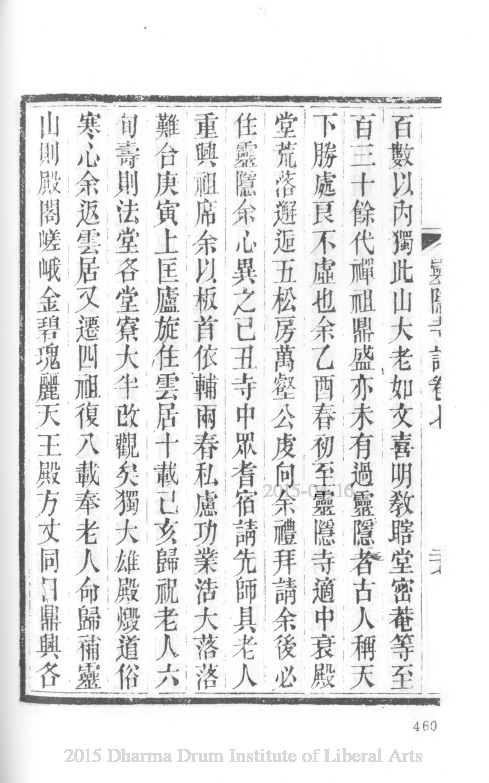 靈隱寺誌卷七
百數以內獨此山大老如文喜明教瞎堂密菴等至
百三十餘代禪祖鼎盛亦未有過靈隱者古人稱天
下勝處良不虛也余乙酉春初至靈隱寺適中衰殿
堂荒落邂逅五松房萬壑公虔向余禮拜請余後必
住靈隱余心異之己丑寺中眾耆宿請先師具老人
重興祖席余以板首依輔兩春私慮功業浩大落落
難合庚寅上匡廬旋住雲居十載己亥歸祝老人六
旬壽則法堂各堂寮大半改觀矣獨大雄殿燬道俗
寒心余返雲居又遷四祖復八載奉老人命歸補靈
山則殿閣嵯峨金碧瑰麗天王殿方丈同日鼎興各
2015-04-16
460
2015 Dharma Drum Institute of Liberal Arts